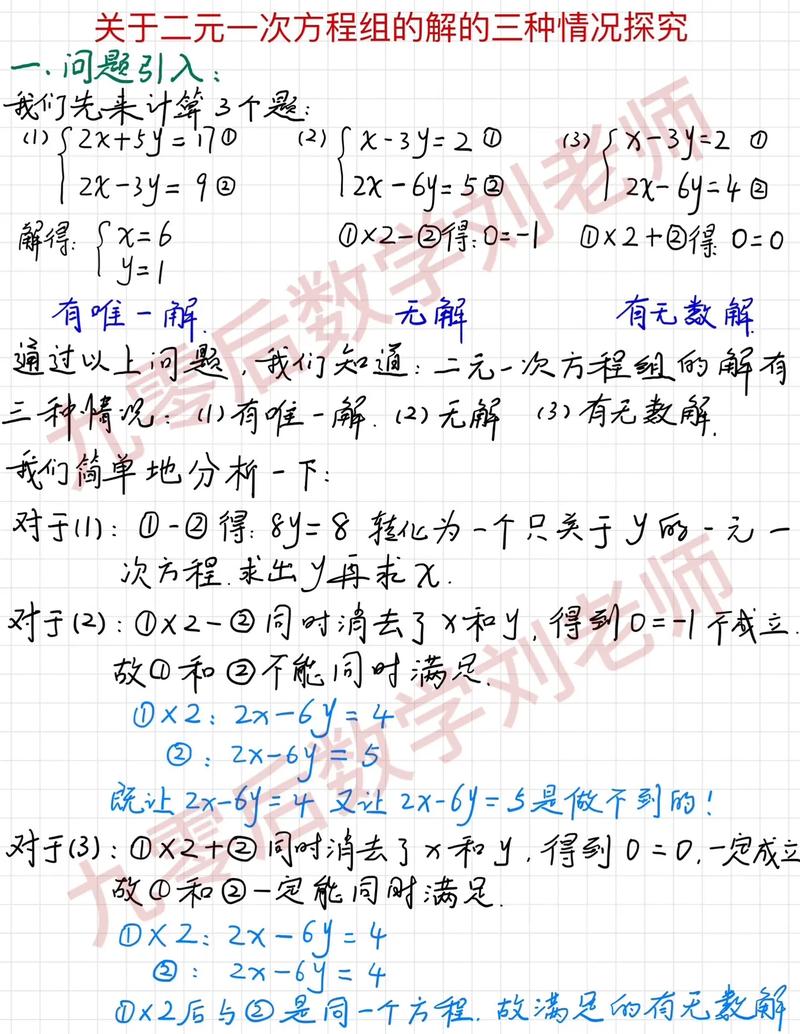 关于二元一次方程组的解的三种情况探究
一.问题引入:
我们先来计算3个题:
(1) { 2x+5y=17① (2) { x-3y=2 ① (3) { x-3y=2 ①
2x-3y=9② 2x-6y=5② 2x-6y=4②
解得: { x=6 ①×2-②得:0=-1 ①×2+②得 0=0
y=1
有唯一解. 无解 有无数解
通过以上问题,我们知道:二元一次方程组的解有
三种情况:(1)有唯一解.(2)无解 (3)有无数解.
我们简单地分析一下:
对于(1):①-②得:8y=8 转化为一个只关于y的一元一
次方程.求出y再求x.
对于(2):①×2-②同时消去了x和y,得到0=-1不成立.
故①和②不能同时满足.
①×2:2x-6y=4
②:2x-6y=5
既让2x-6y=4又让2x-6y=5是做不到的!
对于(3):①×2+②同时消去了x和y,得到0=0,一定成立
故①和②一定能同时满足.
①×2:2x-6y=4
②:2x-6y=4
①×2后与②是同一个方程.故满足的有无数解
九零后数学刘老师
九零后数学刘老师